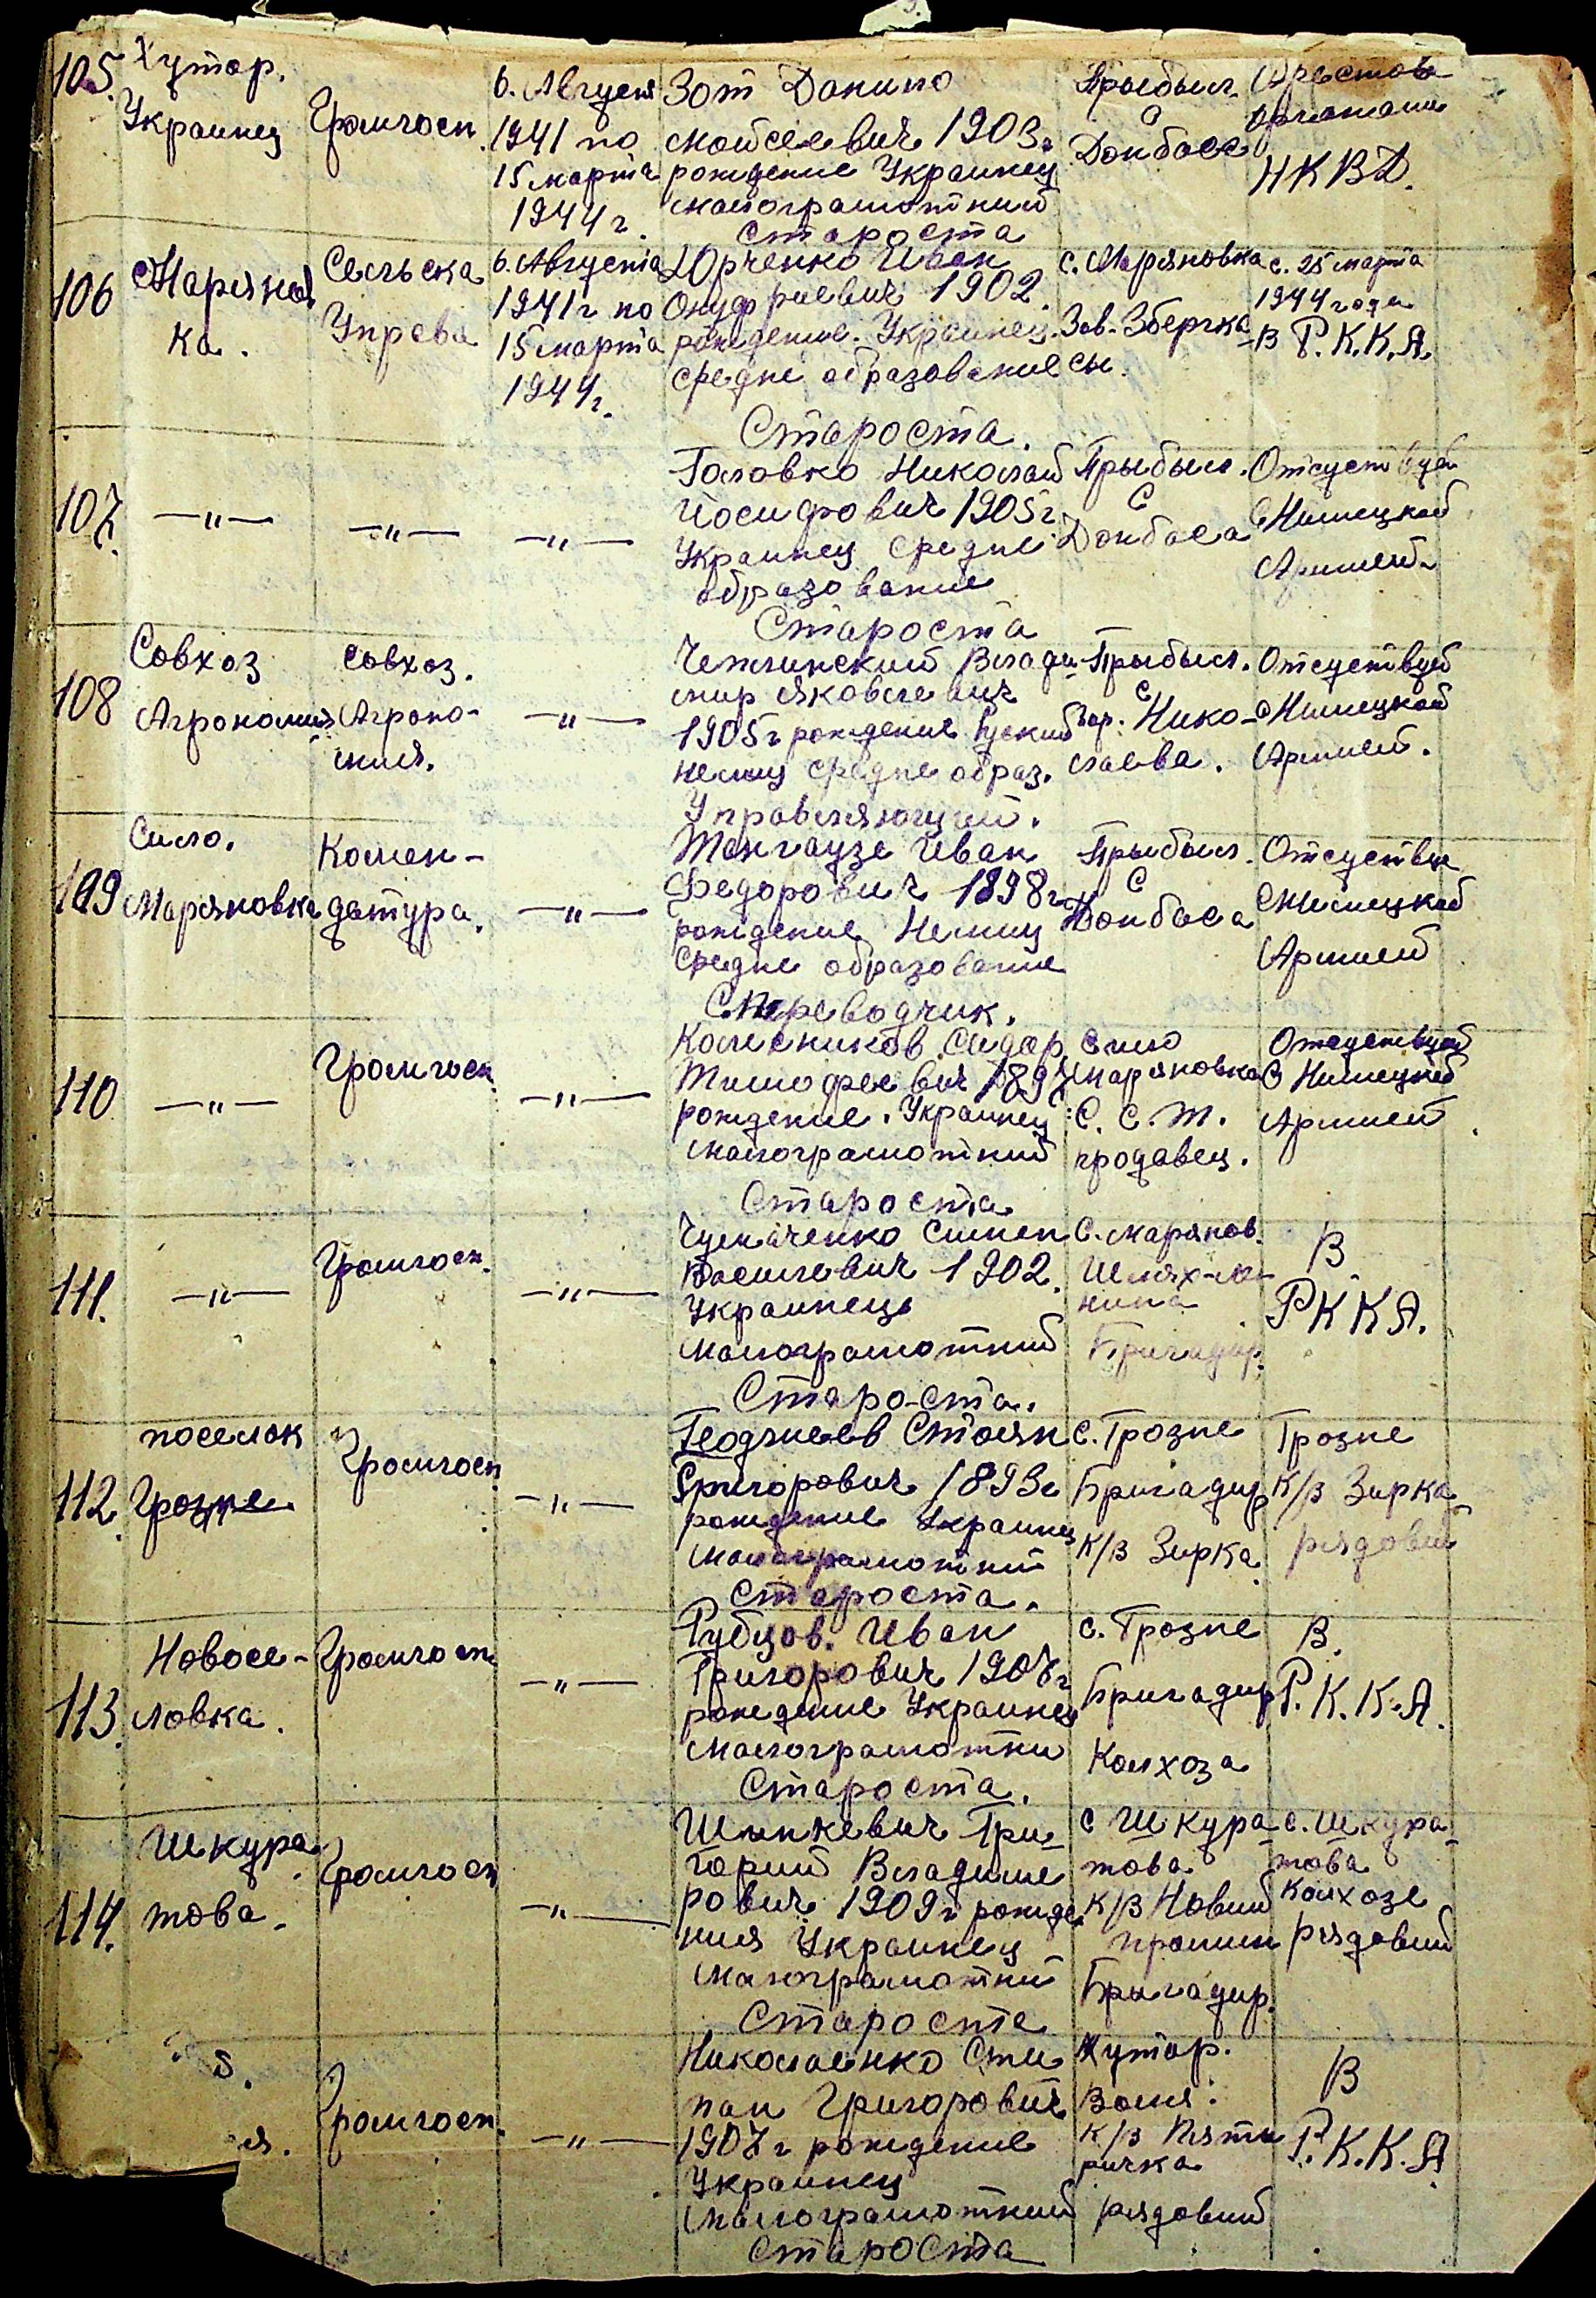 105. Хутор. Украинец
Громгосп.
6. Августа
1941 по
15 марта
1944 г.
Зот Данило
Мойсеевич 1903 г
рождение Украинец
малограмотний
Староста
Прыбыл
с
Донбаса
Арестов
органами
НКВД.
106 Маряновка.
Сельска
Управа
6. Августа
1941 г по
15 марта
1944 г.
Юрченко Иван
Онуфриевич 1902
рождение. Украинец.
средне образование
Староста.
с. Маряновка
Зав. Зберкасы.
с. 25 марта
1944 года
в Р.К.К.А.
107. —"— —"— —"—
Головко Николай
Йосифович 1905 г
Украинец средне
образование
Староста
Прыбыл.
с
Донбаса
Отсуствует
с Нимецкой
Армией.
108
Совхоз
Агрономия
совхоз.
Агроно-
мия.
—"—
Владимир Яковлевич
1905 г рождение Руский
немец средне образ.
Управляющий.
Прыбыл.
с
гор. Нико-
лаева.
Отсуствует
с Нимецкой
Армией.
109
Село.
Маряновка
Комен-
датура.
—"—
Иван
Федорович 1898 г
рождение Немец
средне образование
Переводчик.
Прыбыл.
с
Донбаса
Отсуствуе
с Нимецкой
Армией
110 —"—
Громгосп.
—"—
Колесников Сидор
Тимофеевич 1897
рождение. Украинец
малограмотний
Староста
село
Маряновка
С. С. Т.
продавец.
Отсуствует
с Нимецкой
Армией
111. —"—
Громгосп.
—"—
Чумаченко Симен
Васильевич 1902.
Украинець
малограмотний
Староста.
с. Марянов.
Бригадир.
В
РККА.
112.
поселок
Грозне
Громгосп.
—"—
Стоян
Григорович 1893 г
рождение Украинец
малограмотний
Староста.
с. Грозне
Бригадир
к/в Зирка.
Грозне
к/в Зирка
рядовий
113.
Новосе-
ловка.
Громгосп
—"—
Рубцов. Иван
Григорович 1907 г
рождение Украинец
малограмотни
Староста.
с. Грозне
Бригадир
Колхоза
В.
Р.К.К.А.
114.
Шкура
това.
Громгосп
—"—
Шинкевич Гри-
горий Владиме
рович 1909 г рожде
ния Украинец
малограмотний
Староста
с Шкура-
това
к/в Новий
промин
Бригадир.
с. Шкура-
това
колхозе
рядовий
я.
Громгосп.
—"—
Николаенко Сти
пан Григорович
1907 г рождение
Украинец
малограмотний
Староста
Хутор.
Воля.
к/в Пяти
ричка
рядовий
В
Р.К.К.А